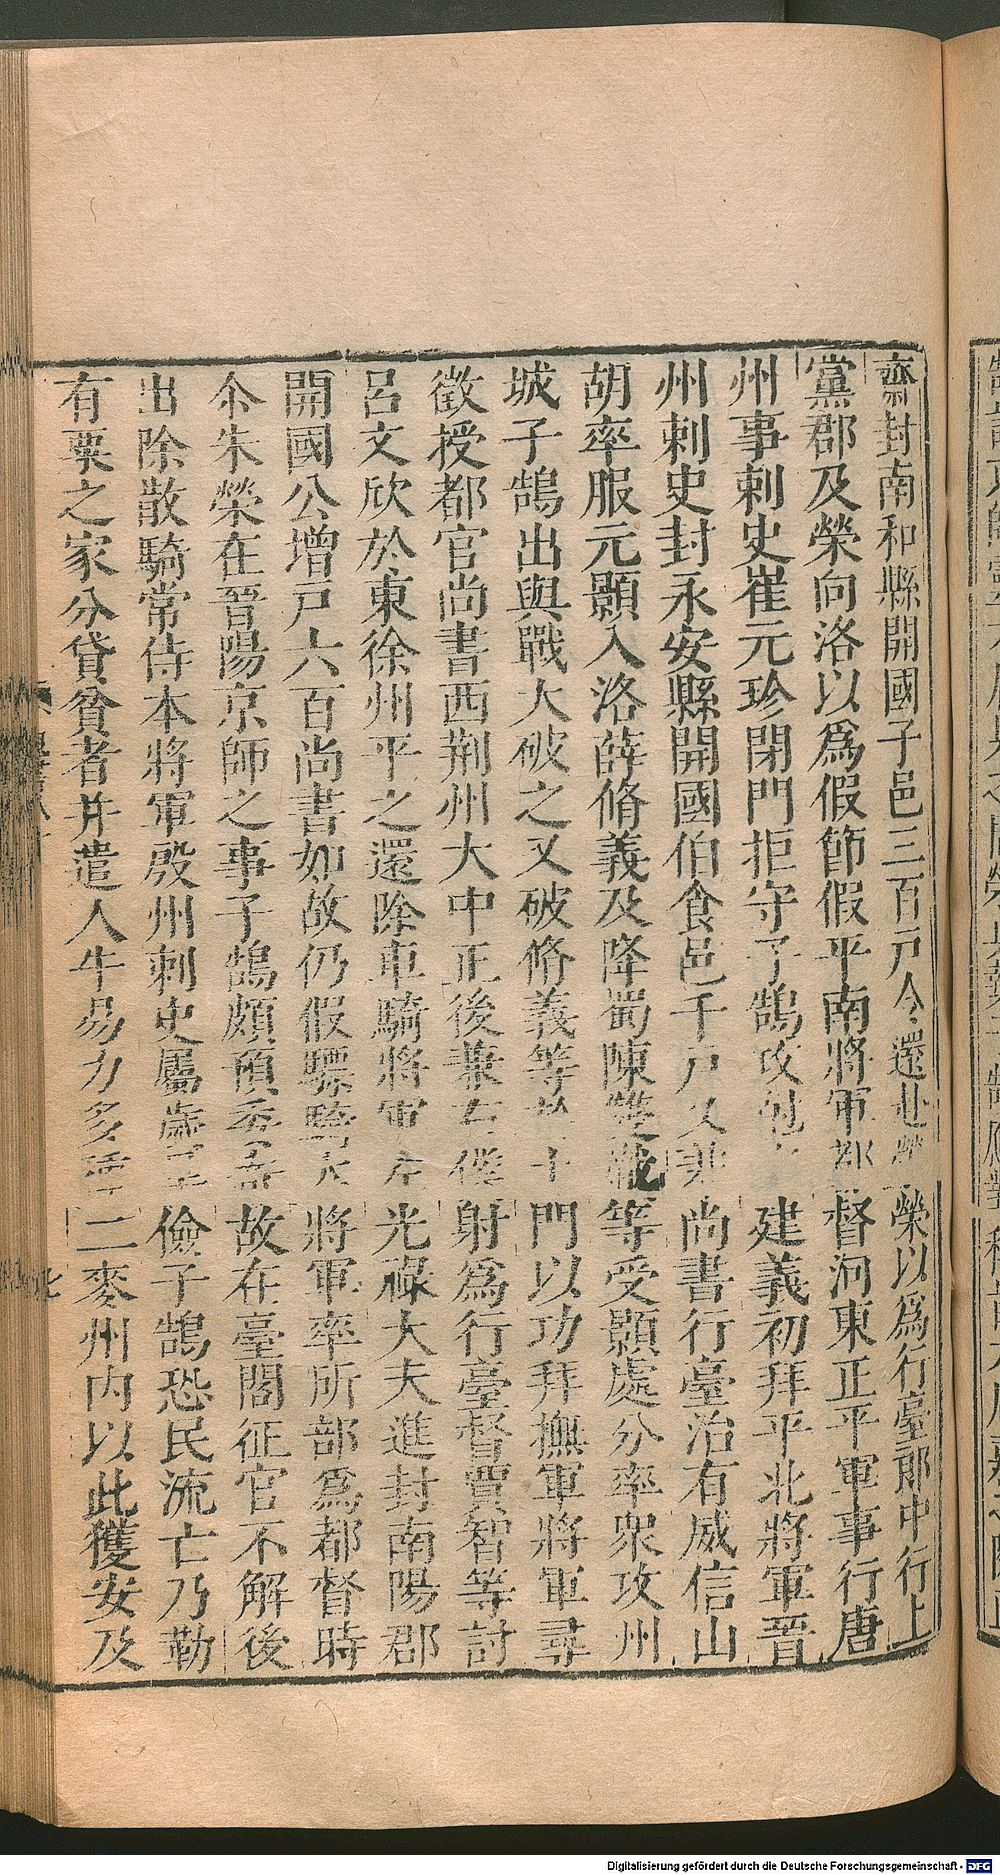 齋封南和縣開國子邑三百戶令還赴榮榮以爲行臺郎中行上
黨郡及榮向洛以爲假節假平南將軍都督河東正平軍事行唐
州事刺史崔元珍閉門拒守子鵠攻剋建義初拜平北將軍晉
州刺史封永安縣開國伯食邑千戶又兼尚書行臺治有威信山
胡率服元顥入洛薛脩義及降蜀陳雙熾等受顥處分率眾攻州
城子鵠出與戰大破之又破脩義等於土門以功拜撫軍將軍尋
徵授都官尚書西荆州大中正後兼右僕射爲行臺督賈智等討
呂文欣於東徐州平之還除車騎將軍左光祿大夫進封南陽郡
開國公增戶六百尚書如故仍假驃騎大將軍率所部爲都督時
尒朱榮在晉陽京師之事子鵠頗預委寄故在臺閣征官不解後
出除散騎常侍本將軍殷州刺史屬歲旱儉子鵠恐民流亡乃勒
有粟之家分貸貧者并遣人牛易力多種二麥州内以此獲安及
Digitalisierung gefördert durch die Deutsche Forschungsgemeinschaft - DFG